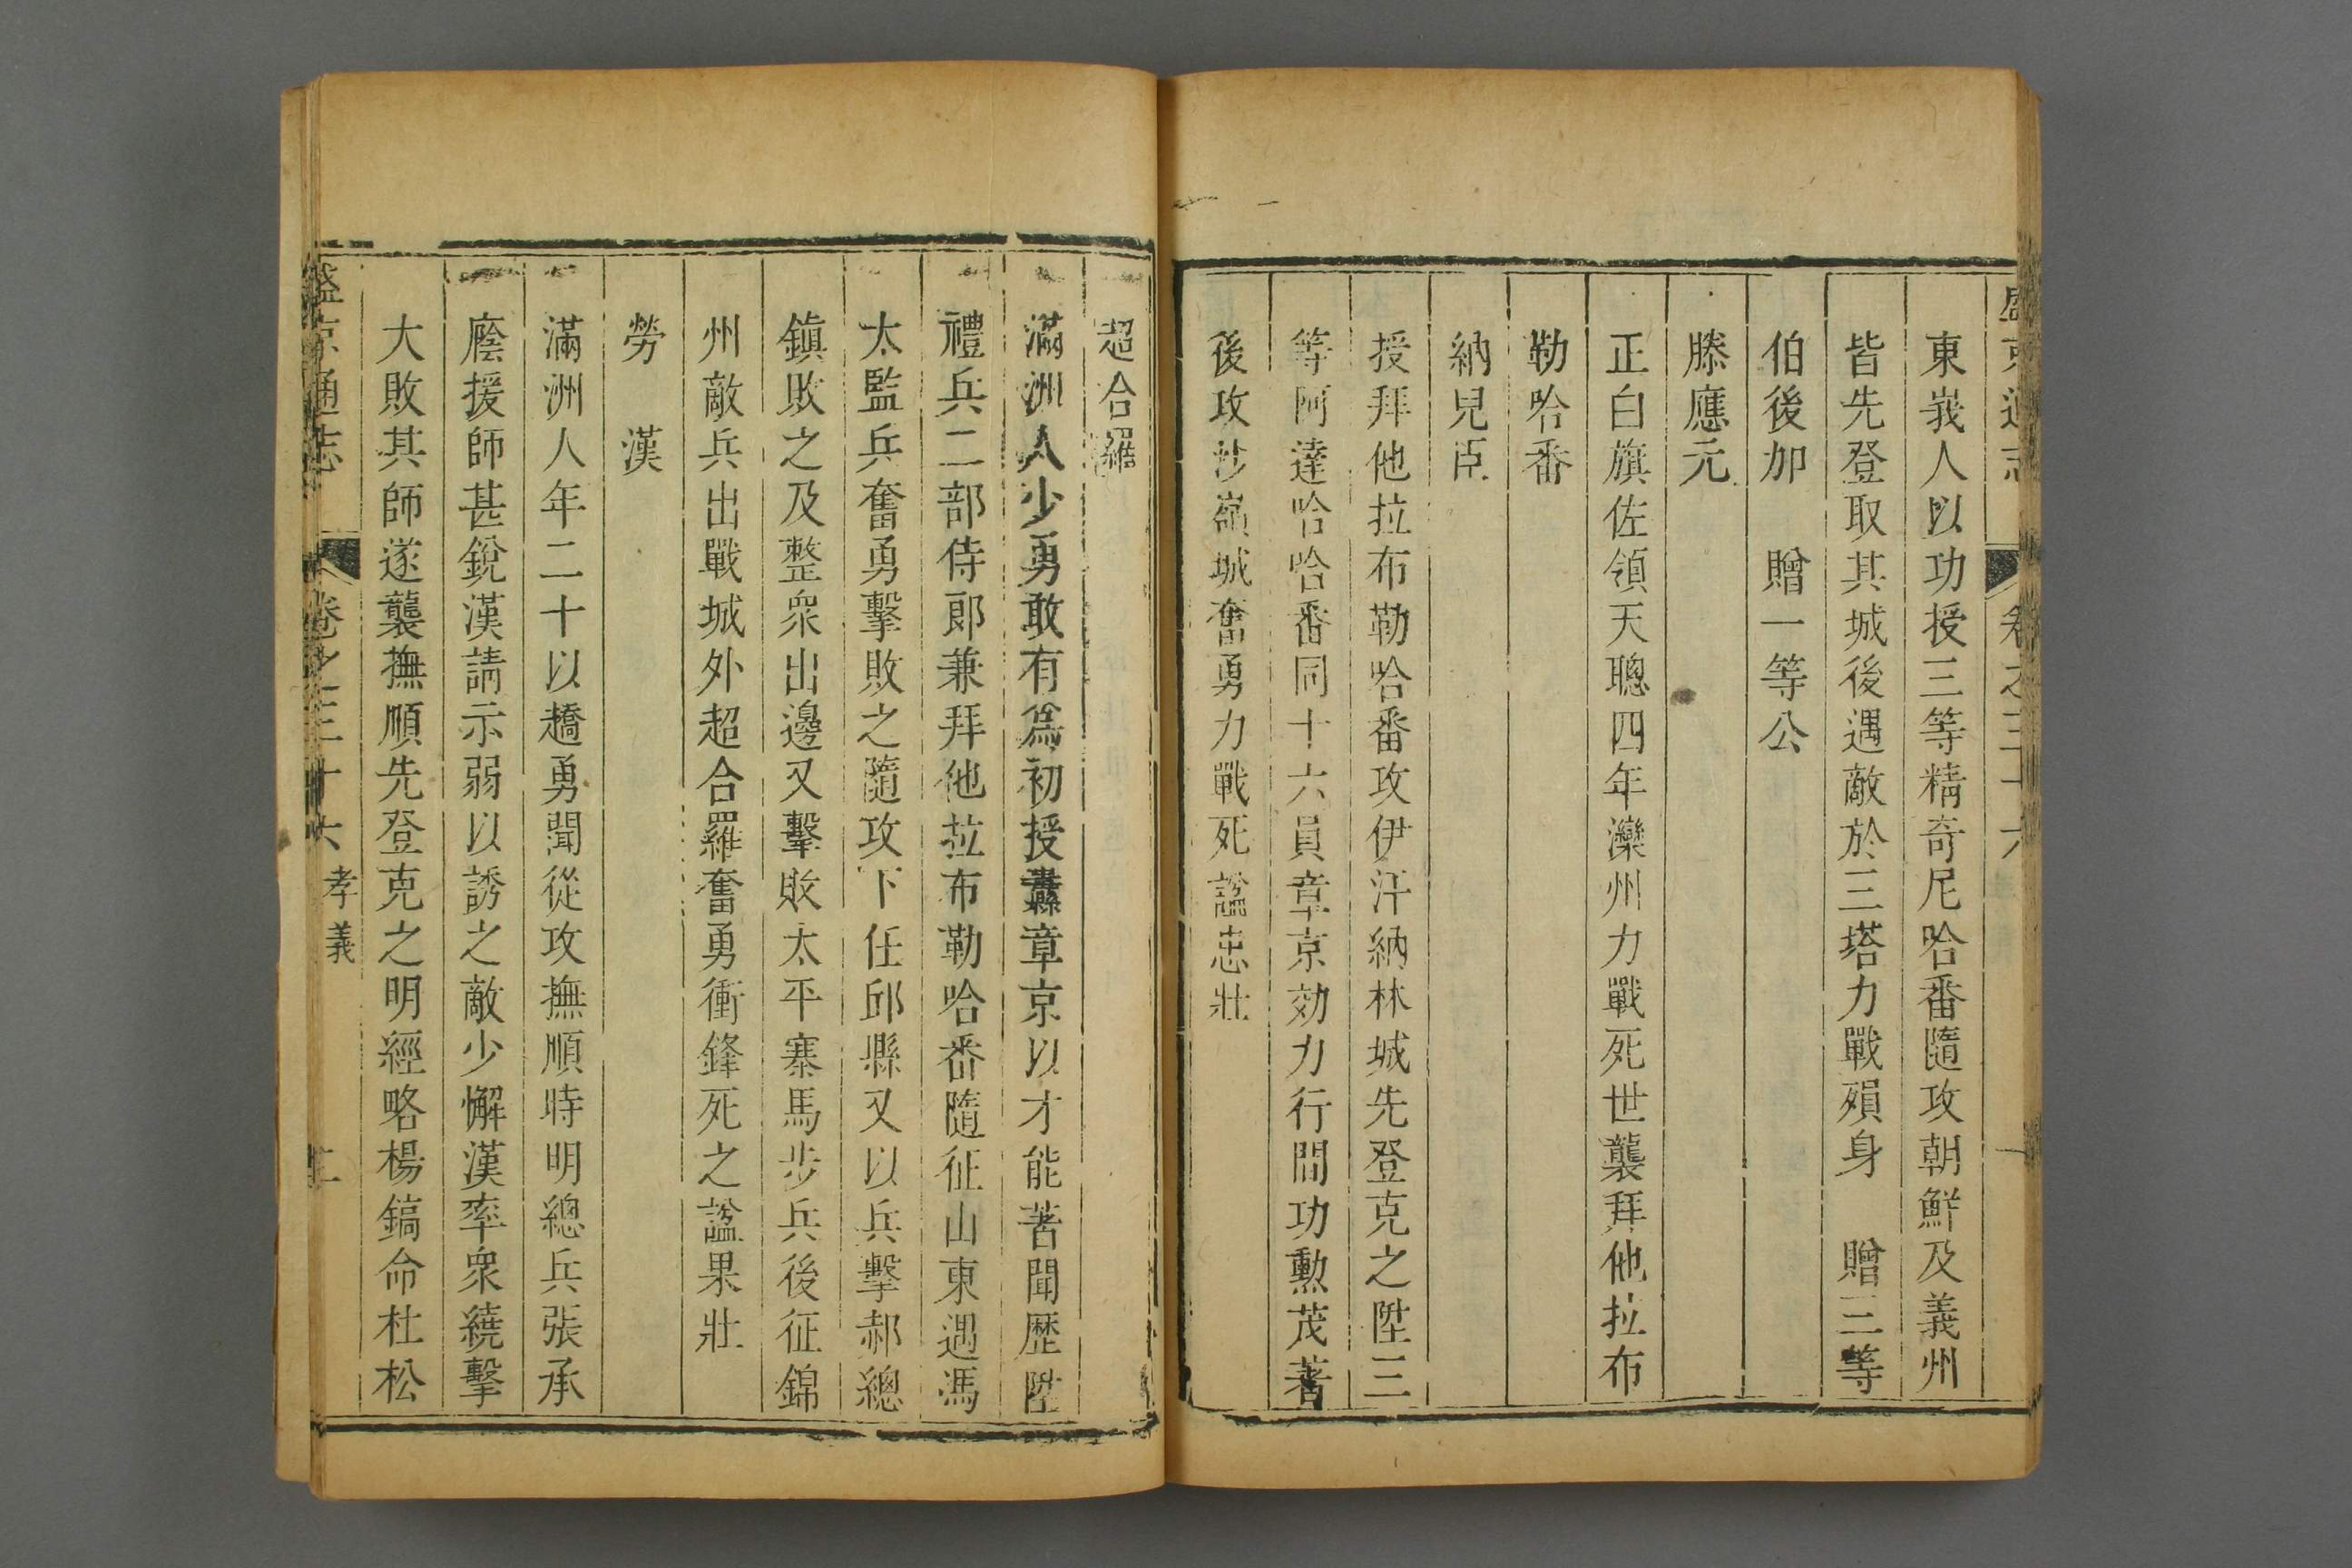 盛京通志 卷之三十六
東峩人以功授三等精奇尼哈番隨攻朝鮮及義州
皆先登取其城後遇敵於三塔力戰殞身 贈三等
伯後加 贈一等公
滕應元
正白旗佐領天聰四年灤州力戰死世襲拜他拉布
勒哈番
納兒臣
授拜他拉布勒哈番攻伊汗納林城先登克之陞三
等阿達哈哈番同十六員章京効力行間功勲茂著
後攻沙嶺城奮勇力戰死諡忠壯
超合羅
滿洲人少勇敢有爲初授纛章京以才能著聞歴陞
禮兵二部侍郎兼拜他拉布勒哈番隨征山東遇馮
太監兵奮勇擊敗之隨攻下任邱縣又以兵擊郝總
鎮敗之及整衆出邊又擊敗太平寨馬步兵後征錦
州敵兵出戰城外超合羅奮勇衝鋒死之諡果壯
勞 漢
滿洲人年二十以趫勇聞從攻撫順時明總兵張承
廕援師甚銳漢請示弱以誘之敵少懈漢率衆繞擊
大敗其師遂襲撫順先登克之明經略楊鎬命杜松
盛京通志 卷之三十六 孝義 二